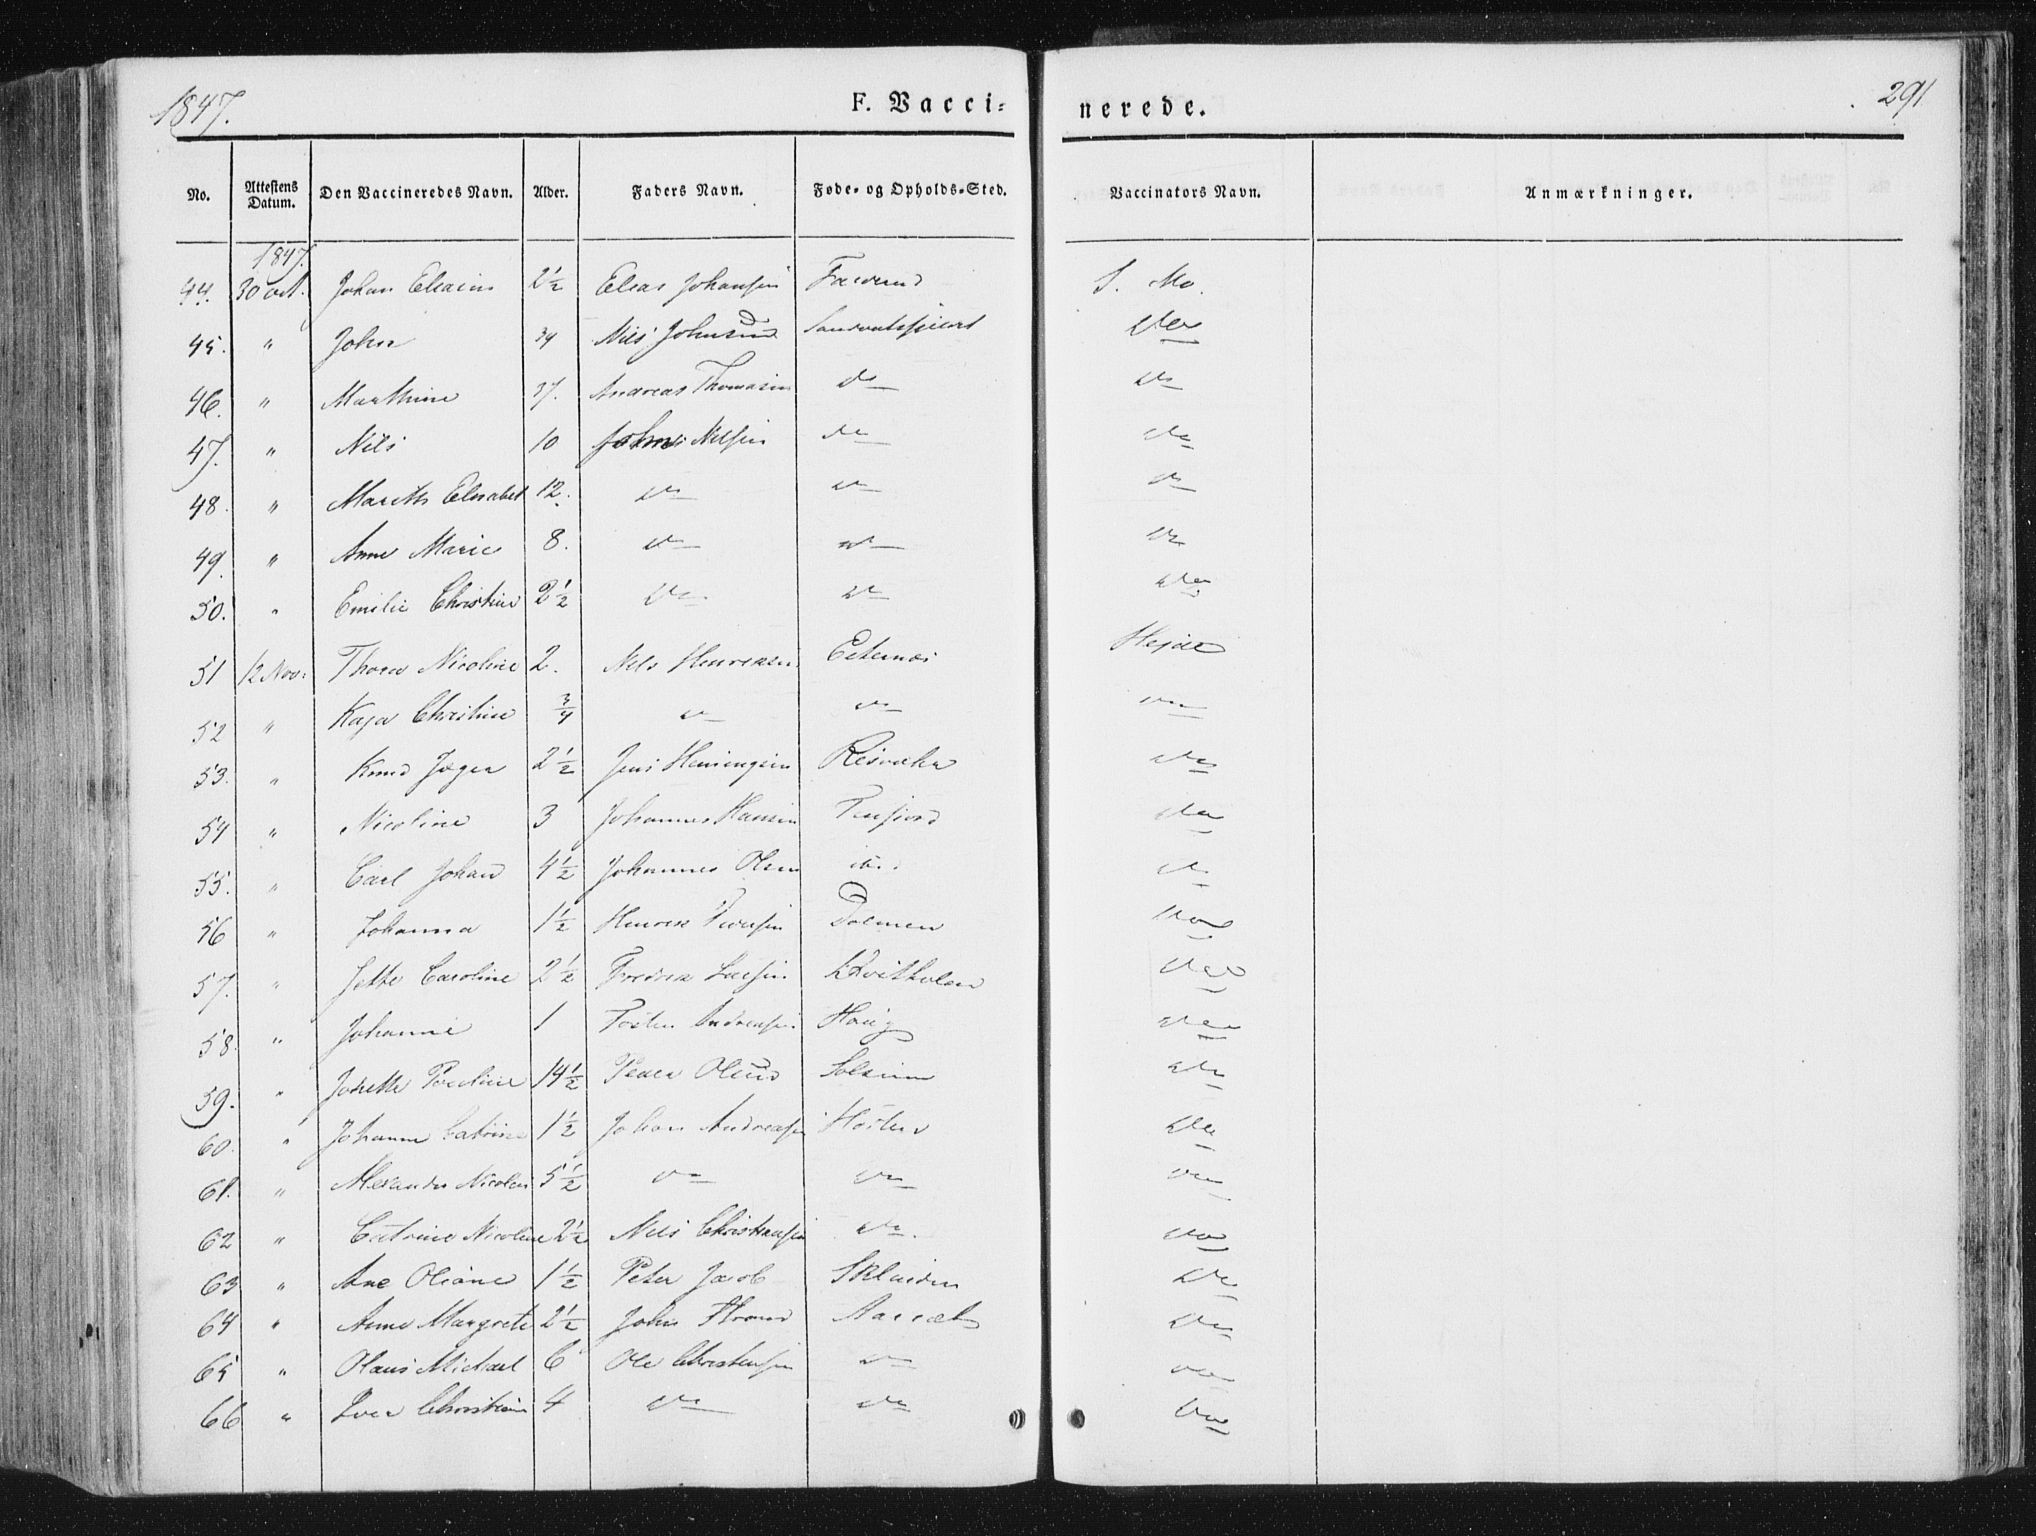 1847.
F. Vacci=
nerede.
291
No.
Attestens Datum.
Den Vaccineredes Navn.
Alder.
Faders Navn.
Føde- og Opholds-Sted.
Vaccinators Navn.
Anmærkninger.
1847.
44. 30 oct. Johan 2½ Elias Johansen S. Mo.
45. " John Nils Johnsen do
46. " Marthine 37. Andreas Thomasen do do
47. " Nils 10 Johns Nilsen do do
48. " Mareth Elisabet 12. do do do
49. " Anne Marie 8. do do do
50. " Emilie Christine 2½ do do do
51 12 Nov: Thora Nicoline 2. Nils Henriksen
52 " Kaja Christine ¾ do do do
53. " Knud 2½ Jens Henningsen do
54 " Nicoline 3 Johannes Hansen Tenfjord do
55. " Carl Johan 4½ Johannes Olsen do
56 " Johanna 1½ Henrik Dolmen do
57. " Jette Caroline 2½ Fredrik Kvitholm do
58. " Johanne 1 Andreasen Houg do
59. " 14½ Peder Olsen Solsem do
60. " Johanne Catrine 1½ Johan Andreasen Horten do
61. " Alexander Nicolai 5½ do do do
62 " Catrine Nicoline 2½ Nils Christensen do. do
63 " Ane Oliane 1½ Peter Jacob do
64 " Anne Margrete 2½ John do
65 " Olaus Michael 6 Ole Christensen do do
66 " Iver Christian 4 do do do